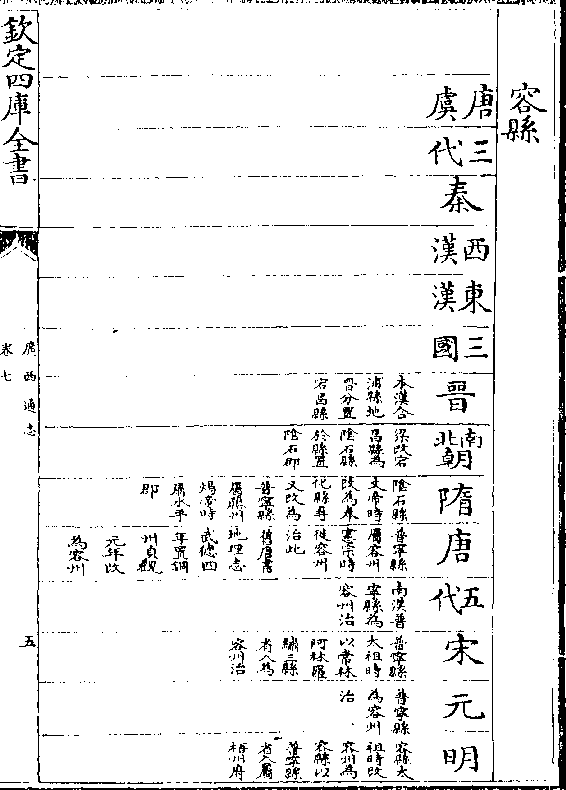 容縣
唐虞
三代
秦
西漢
東漢
三國
晉
本漢合
浦縣地
晉分置
宕昌縣
南北朝
梁改宕
昌縣為
陰石縣
於縣置
陰石郡
隋
陰石縣
文帝時
改為奉
化縣尋
又改為
普寧縣
屬藤州
煬帝時
屬永平
郡
唐
普寧縣
屬容州
憲宗時
徙容州
治此
舊唐書
地理志
武德四
年置銅
州貞觀
元年改
為容州
五代
南漢普
寧縣為
容州治
宋
普寧縣
太祖時
以常林
阿林羅
繡三縣
省入為
容州治
元
普寧縣
為容州
治
明
容縣太
祖時改
容州為
容縣以
普寧縣
省入屬
梧州府
欽定四庫全書
廣西通志
卷七
五